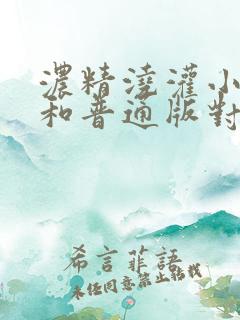 濃精澆灌小
和普通版對
希言菲語
未經同意禁止轉載